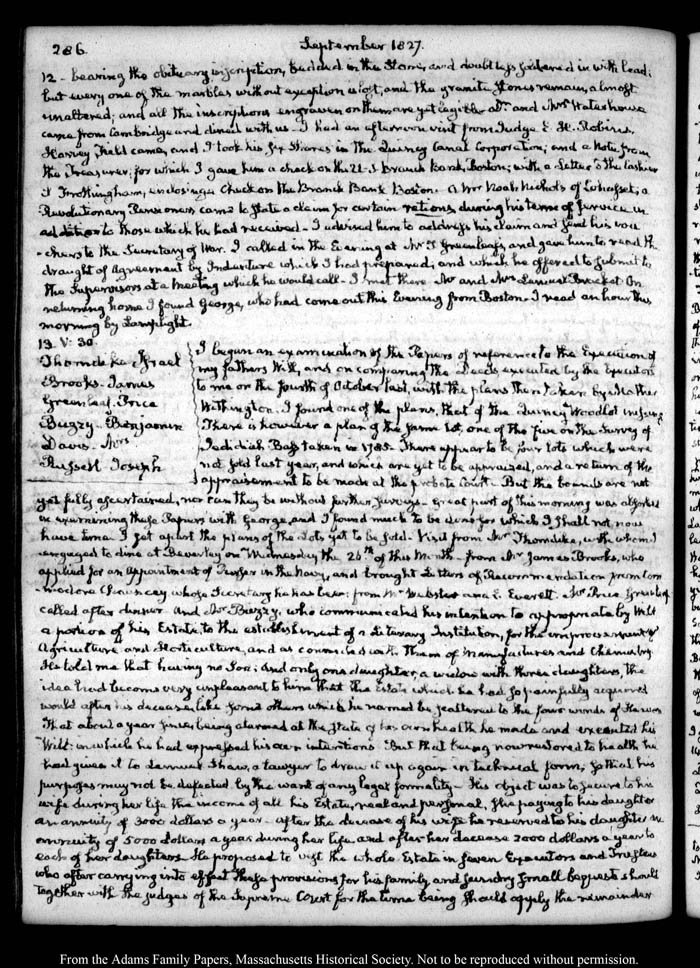 286.
September 1827.
12 - bearing the obituary inscription, buried in the Stone, and doubtless fastened in with lead;
but every one of the marbles without exception is lost, and the granite stones remain almost
unaltered; and all the inscriptions engraven on them are yet legible. Dr. and Mrs Waterhouse
came from Cambridge and dined with us. I had an afternoon visit from Judge E. H. Robbins.
Harvey Field came, and I took his six shares in the Quincy Canal Corporation; and a Note from
the Treasurer; for which I gave him a check on the U.S. Branch Bank, Boston; with a Letter to the Cashier
S Frothingham, enclosing a Check on the Branch Bank Boston. A Mr Noah Nichols of Cohasset, a
Revolutionary Pensioner came to State a claim for certain rations during his terms of service in
addition to those which he had received - I advised him to address his claim and send his vou
-chers to the Secretary of War. I called in the Evening at Mr T Greenleaf's, and gave him to read the
draught of Agreement by Indenture which I had prepared, and which he offered to submit to
the Supervisors at a Meeting which he would call - I met there Mr and Mrs Lemuel Bracket. On
returning home I found George, who had come out this Evening from Boston. I read an hour this
morning by Lamplight.
13. V: 30.
Thorndike Israel
Brooks. James
Greenleaf. Price
Bussy. Benjamin
Davis. Mrs
Russell Joseph
I began an examination of the Papers of reference to the Execution of
my fathers Will, and on comparing the Deeds executed by the Executors
to me on the fourth of October last, with the plans then taken by Mather
Withington. I found one of the plans, that of the Quincy Woodlot missing
There is however a plan of the same lot, one of the five on the Survey of
Jedidiah Bass taken in 1785. There appear to be four lots which were
not sold last year, and which are yet to be appraised, and a return of the
appraisement to be made at the probate Court. But the bounds are not
yet fully ascertained, nor can they be without further surveys - Great part of this morning was absorbed
in examining these Papers with George, and I found much to be done for which I shall not now
have time. I set apart the plans of the Lots yet to be sold. Visit from Mr Thorndike, with whom I
engaged to dine at Beverley on Wednesday the 26th of this Month - from Mr James Brooks, who
applied for an appointment of Purser in the Navy, and brought Letters of Recommendation from Com-
-modore Chauncey whose Secretary he has been: from Mr Webster and E. Everett. Mr Price Greenleaf
called after dinner and Mr Bussy, who communicated his intention to appropriate by Will
a portion of his Estate, to the establishment of a Literary Institution, for the improvement of
Agriculture and Horticulture, and as connected with them of Manufactures and Chemistry.
He told me that having no Son; and only one daughter, a widow with three daughters, the
idea had become very unpleasant to him that the Estate which he had so painfully acquired
would after his decease, like some others which he named be scattered to the four winds of Heaven
That about a year since being alarmed at the state of his own health he made and executed his
Will: in which he had expressed his own intentions. But that being now restored to health he
had given it to Lemuel Shaw, a Lawyer to draw it up again in technical form, so that his
purposes may not be defeated by the want of any legal formality - His object was to secure to his
wife during her life the income of all his Estate, real and personal, she paying to his daughter
an annuity of 3000 dollars a year - after the decease of his wife he reserved to his daughter an
annuity of 5000 dollars a year during her life, and after her decease 2000 dollars a year to
each of her daughters. He proposed to vest the whole Estate in seven Executors and Trustees
who after carrying into effect these provisions for his family and sundry small bequests should
together with the Judges of the Supreme Court for the time being should apply the remainder
From the Adams Family Papers, Massachusetts Historical Society. Not to be reproduced without permission.